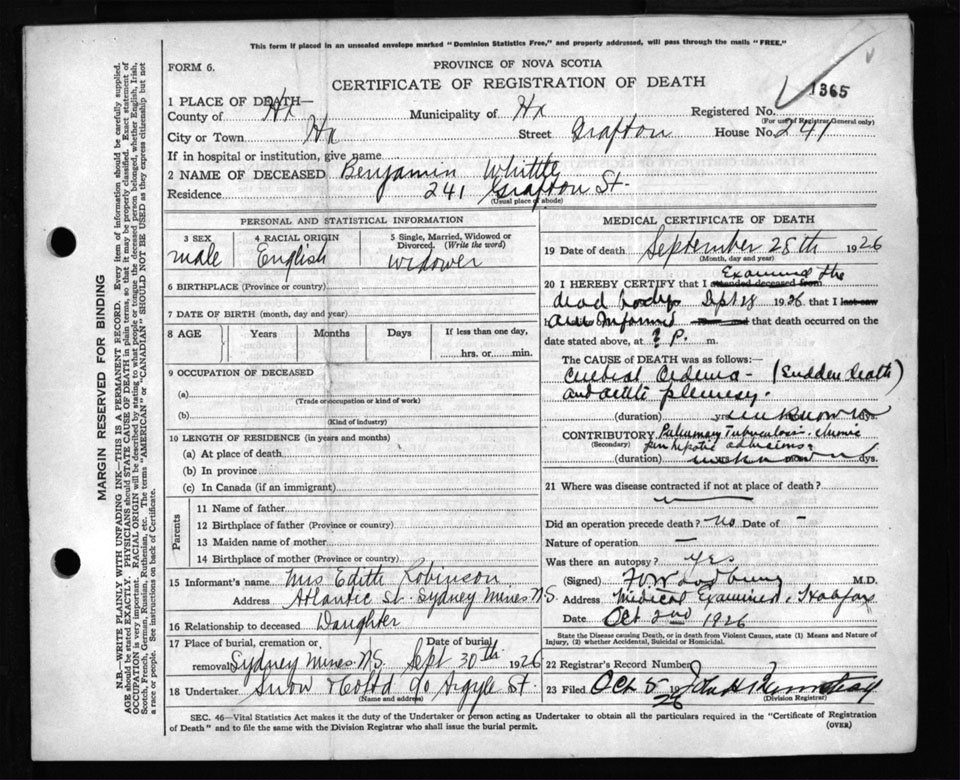 This form if placed in an unsealed envelope marked "Dominion Statistics Free," and properly addressed, will pass through the mails "FREE."
FORM 6.
PROVINCE OF NOVA SCOTIA
CERTIFICATE OF REGISTRATION OF DEATH
1365
1 PLACE OF DEATH—
County of Hx Municipality of Hx Registered No.
(For use of Registrar General only)
City or Town Hx Street Grafton House No. 241
If in hospital or institution, give name
2 NAME OF DECEASED Benjamin Whittle
Residence 241 Grafton St.
(Usual place of abode)
PERSONAL AND STATISTICAL INFORMATION
3 SEX 4 RACIAL ORIGIN 5 Single, Married, Widowed or Divorced. (Write the word)
male English widower
6 BIRTHPLACE (Province or country)
7 DATE OF BIRTH (month, day and year)
8 AGE Years Months Days If less than one day,
hrs. or min.
9 OCCUPATION OF DECEASED
(a)
(Trade or occupation or kind of work)
(b)
(Kind of industry)
10 LENGTH OF RESIDENCE (in years and months)
(a) At place of death
(b) In province
(c) In Canada (if an immigrant)
Parents
11 Name of father
12 Birthplace of father (Province or country)
13 Maiden name of mother
14 Birthplace of mother (Province or country)
15 Informant's name Mrs Edith Robinson
Address Atlantic St. Sydney Mines N.S.
16 Relationship to deceased Daughter
17 Place of burial, cremation or removal Sydney Mines N.S. Date of burial Sept 30th 1926
18 Undertaker Snow & Co Ltd 90 Argyle St.
(Name and address)
MEDICAL CERTIFICATE OF DEATH
19 Date of death September 28th 1926
(Month, day and year)
20 I HEREBY CERTIFY that I attended deceased from Examined the
dead body Sept 28 1926 that I last saw
h am informed that death occurred on
the date stated above, at ? P. m.
The CAUSE OF DEATH was as follows:—
Cerebral Oedema - (Sudden death)
and acute pleurisy.
(duration) yrs. unknown dys.
CONTRIBUTORY Pulmonary Tuberculosis. chronic
(Secondary) perihepatic adhesions
(duration) unknown dys.
21 Where was disease contracted if not at place of death?
Did an operation precede death? No Date of -
Nature of operation -
Was there an autopsy? yes
(Signed) M.D.
Address Medical Examiner, Halifax
Date Oct 2nd 1926
State the Disease causing Death, or in death from Violent Causes, state (1) Means and Nature of Injury, (2) whether Accidental, Suicidal or Homicidal.
22 Registrar's Record Number
23 Filed Oct 5 1926
(Division Registrar)
SEC. 46—Vital Statistics Act makes it the duty of the Undertaker or person acting as Undertaker to obtain all the particulars required in the "Certificate of Registration
of Death" and to file the same with the Division Registrar who shall issue the burial permit. (OVER)
MARGIN RESERVED FOR BINDING
N.B.—WRITE PLAINLY WITH UNFADING INK—THIS IS A PERMANENT RECORD. Every item of information should be carefully supplied.
AGE should be stated EXACTLY. PHYSICIANS should STATE CAUSE OF DEATH in plain terms, so that it may be properly classified. Exact statement of
OCCUPATION is very important. RACIAL ORIGIN will be described by stating to what people or tongue the deceased person belonged, whether English, Irish,
Scotch, French, German, Russian, Ruthenian, etc. The terms "AMERICAN" or "CANADIAN" SHOULD NOT BE USED as they express citizenship but not
a race or people. See instructions on back of Certificate.